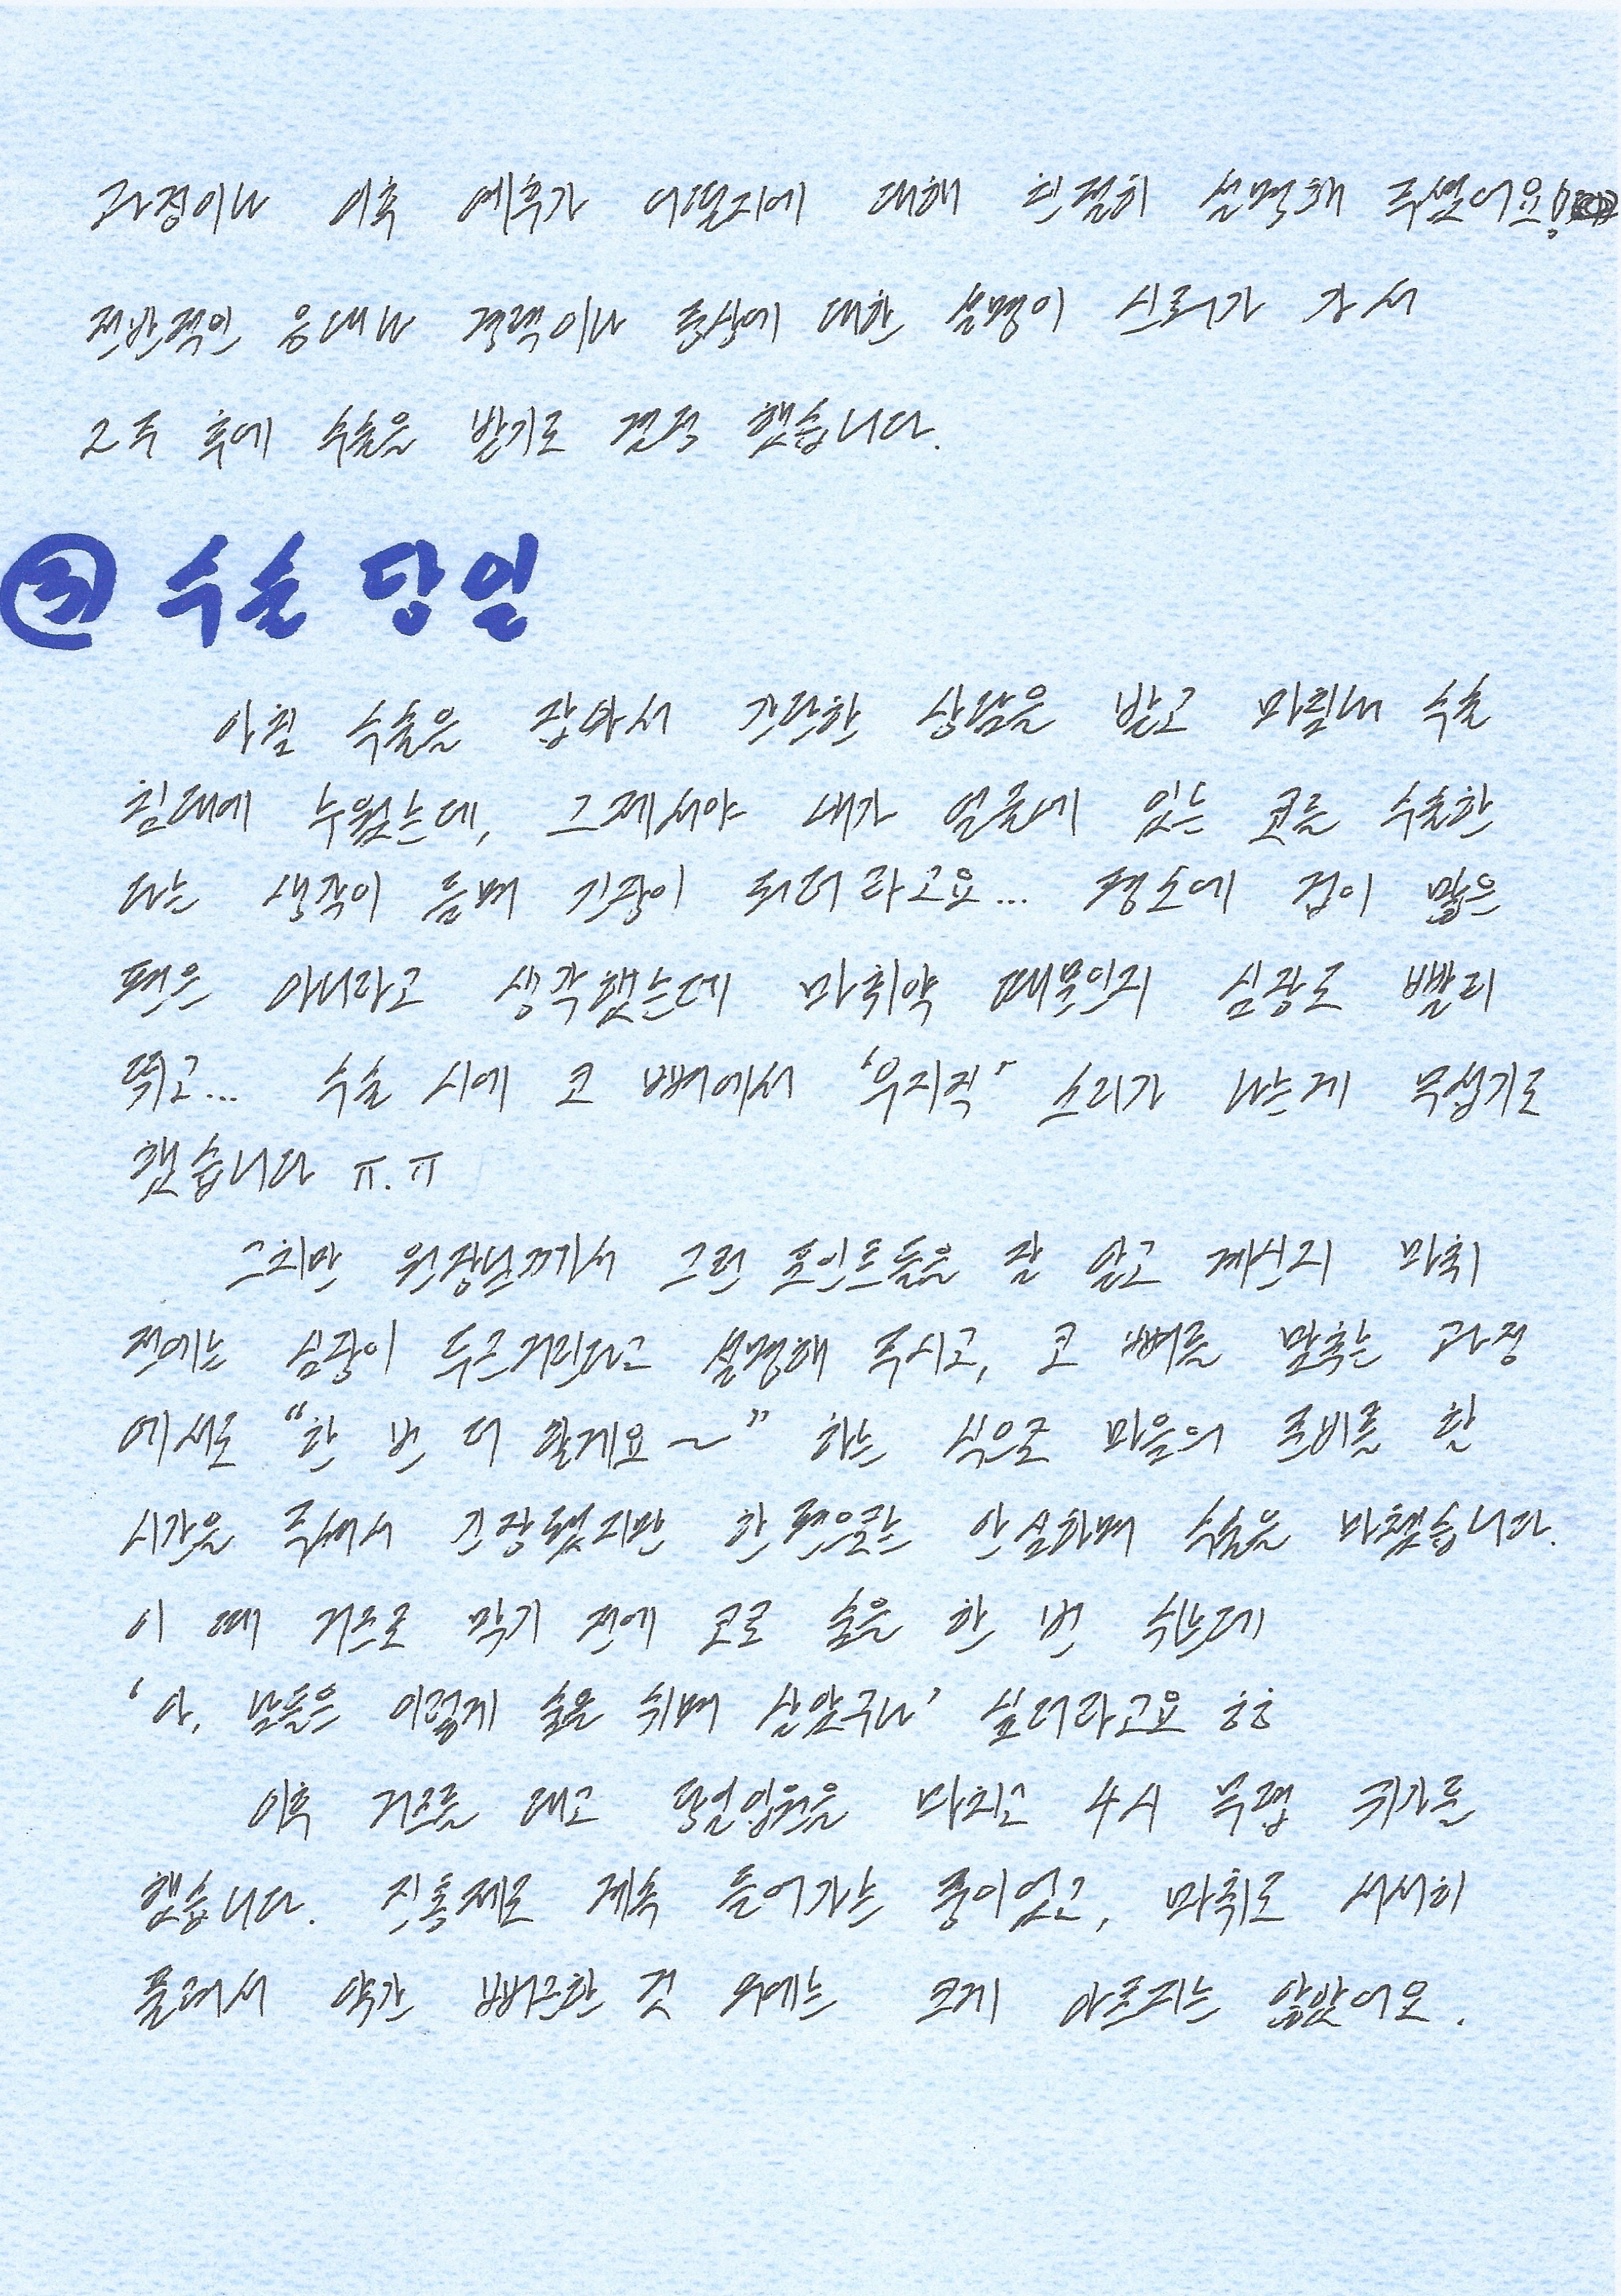 과정이나 이후 예후가 어떨지에 대해 친절히 설명해 주셨어요!
전반적인 응대나 경력이나 증상에 대한 설명이 신뢰가 가서
2주 후에 수술을 받기로 결정 했습니다.
③ 수술 당일
아침 수술을 잡아서 간단한 상담을 받고 마침내 수술
침대에 누웠는데, 그제서야 내가 얼굴에 있는 코를 수술한
다는 생각이 들며 긴장이 되더라고요... 평소에 겁이 많은
편은 아니라고 생각했는데 마취약 때문인지 심장도 빨리
뛰고... 수술 시에 코 뼈에서 '우지직' 소리가 나는게 무섭기도
했습니다 ㅠ.ㅠ
그치만 원장님께서 그런 포인트들을 잘 알고 계신지 마취
전에는 심장이 두근거린다고 설명해 주시고, 코 뼈를 맞추는 과정
에서도 "한 번 더 할게요~" 하는 식으로 마음의 준비를 할
시간을 주셔서 긴장됐지만 한편으로는 안심하며 수술을 마쳤습니다.
이 때 거즈로 막기 전에 코로 숨을 한 번 쉬는데
'아, 남들은 이렇게 숨을 쉬며 살았구나' 싶더라고요 ㅎㅎ
이후 거즈를 대고 당일입원을 마치고 4시 무렵 귀가를
했습니다. 진통제도 계속 들어가는 중이었고, 마취도 서서히
풀려서 약간 뻐근한 것 외에는 크게 아프지는 않았어요.